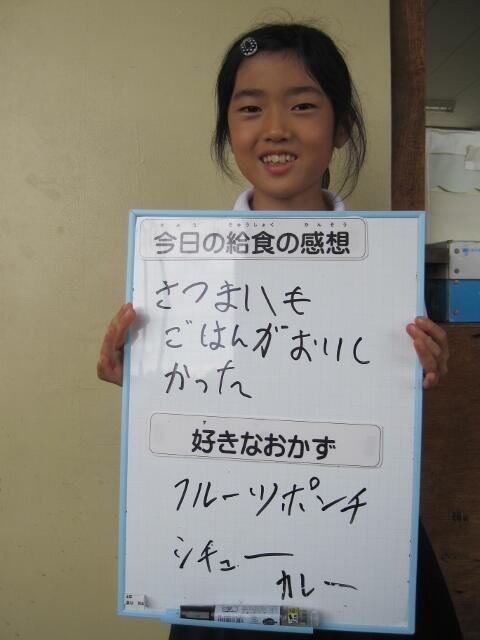 きょう きゅうしょく かんそう
今日の給食の感想
さつまいも
ごはんがおいし
かった
す
好きなおかず
フルーツポンチ
シチュー
カレー